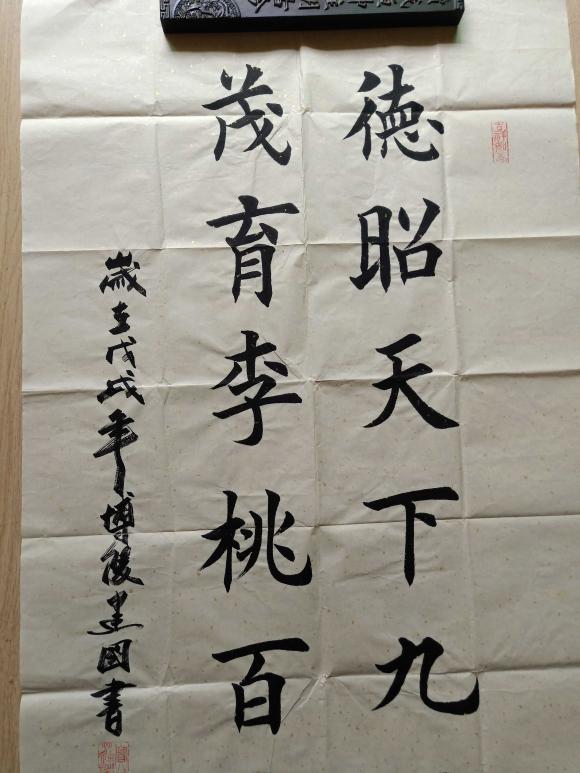 德昭天下九
茂育李桃百
歲在戊戌年博陵建國書